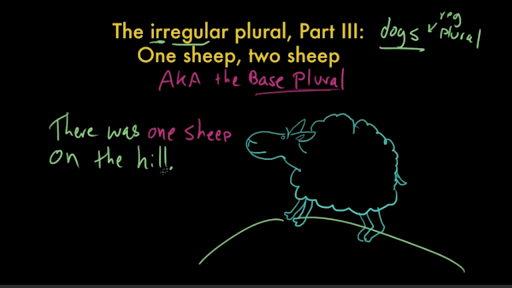 The irregular plural, Part III:
One sheep, two sheep
AKA the Base Plural
dogs
reg
plural
There was one sheep
on the hill.